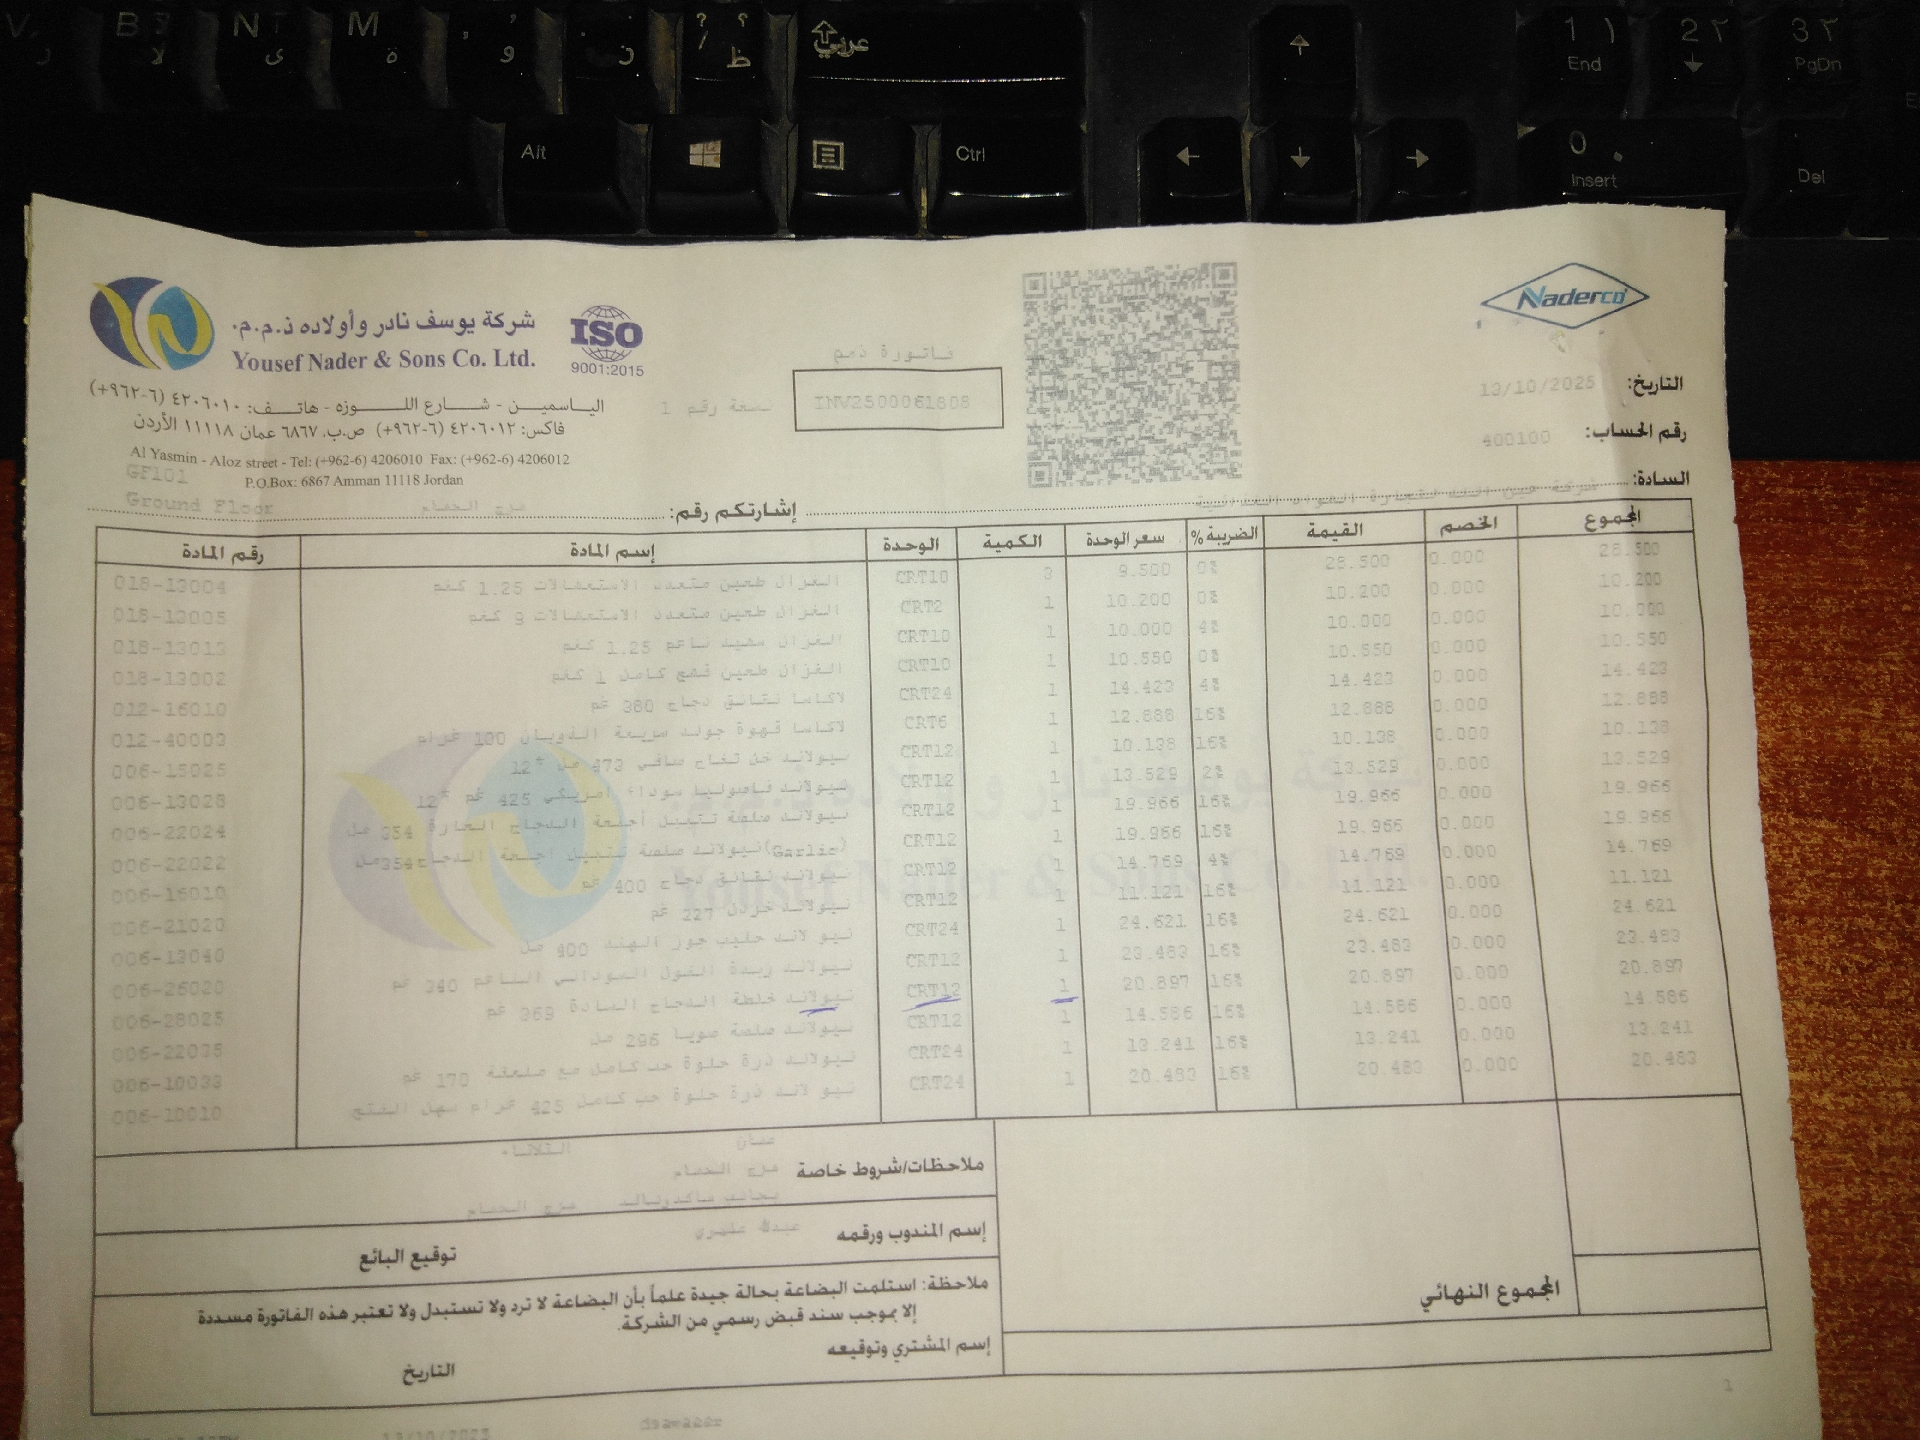 V ر
B لا
N ى
M ة
, و
. ز
؟ ? / ظ
عربي
1 ١ End
2 ٢
3 ٣ PgDn
Alt
Ctrl
0 . Insert
Del
شركة يوسف نادر وأولاده ذ.م.م.
Yousef Nader & Sons Co. Ltd.
ISO
9001:2015
Naderco
الياسمين - شارع اللوزه - هاتف: ٤٢٠٦٠١٠ (٦-٩٦٢+)
فاكس: ٤٢٠٦٠١٢ (٦-٩٦٢+) ص.ب. ٦٨٦٧ عمان ١١١١٨ الأردن
Al Yasmin - Aloz street - Tel: (+962-6) 4206010 Fax: (+962-6) 4206012
P.O.Box: 6867 Amman 11118 Jordan
GF101
Ground Floor
فاتورة ذمم
نسخة رقم 1
INV2500061808
التاريخ: 13/10/2025
رقم الحساب: 400100
السادة: شركة عين الله لتجارة المواد الغذائية
إشارتكم رقم: مرج الحمام
رقم المادة إسم المادة الوحدة الكمية سعر الوحدة الضريبة % القيمة الخصم المجموع
018-13004 الغزال طحين متعدد الاستعمالات 1.25 كغم CRT10 3 9.500 0% 28.500 0.000 28.500
018-13005 الغزال طحين متعدد الاستعمالات 9 كغم CRT2 1 10.200 0% 10.200 0.000 10.200
018-13013 الغزال سميد ناعم 1.25 كغم CRT10 1 10.000 4% 10.000 0.000 10.000
018-13002 الغزال طحين قمح كامل 1 كغم CRT10 1 10.550 0% 10.550 0.000 10.550
012-16010 لاكاسا نقانق دجاج 380 غم CRT24 1 14.423 4% 14.423 0.000 14.423
012-40003 لاكاسا قهوة جولد سريعة الذوبان 100 غرام CRT6 1 12.888 16% 12.888 0.000 12.888
006-15025 نيولاند خل تفاح صافي 473 مل *12 CRT12 1 10.138 16% 10.138 0.000 10.138
006-13028 نيولاند فاصوليا سوداء امريكي 425 غم *12 CRT12 1 13.529 2% 13.529 0.000 13.529
006-22024 نيولاند صلصة تتبيل أجنحة الدجاج الحارة 354 مل CRT12 1 19.966 16% 19.966 0.000 19.966
006-22022 (Garlic)نيولاند صلصة تتبيل اجنحة الدجاج354مل CRT12 1 19.966 16% 19.966 0.000 19.966
006-16010 نيولاند نقانق دجاج 400 غم CRT12 1 14.769 4% 14.769 0.000 14.769
006-21020 نيولاند خردل 227 غم CRT12 1 11.121 16% 11.121 0.000 11.121
006-13040 نيو لاند حليب جوز الهند 400 مل CRT24 1 24.621 16% 24.621 0.000 24.621
006-26020 نيولاند زبدة الفول السوداني الناعم 340 غم CRT12 1 23.483 16% 23.483 0.000 23.483
006-28025 نيولاند خلطة الدجاج السادة 369 غم CRT12 1 20.897 16% 20.897 0.000 20.897
006-22035 نيولاند صلصة صويا 296 مل CRT12 1 14.586 16% 14.586 0.000 14.586
006-10033 نيولاند ذرة حلوة حب كامل مع ملعقة 170 غم CRT24 1 13.241 16% 13.241 0.000 13.241
006-10010 نيو لاند ذرة حلوة حب كامل 425 غرام سهل الفتح CRT24 1 20.483 16% 20.483 0.000 20.483
عمان الثلاثاء
ملاحظات/شروط خاصة مرج الحمام
بجانب ماكدونالد مرج الحمام
إسم المندوب ورقمه عبدالله
توقيع البائع
ملاحظة: استلمت البضاعة بحالة جيدة علماً بأن البضاعة لا ترد ولا تستبدل ولا تعتبر هذه الفاتورة مسددة
إلا بموجب سند قبض رسمي من الشركة.
إسم المشتري وتوقيعه
التاريخ
المجموع النهائي
1
13/10/2025